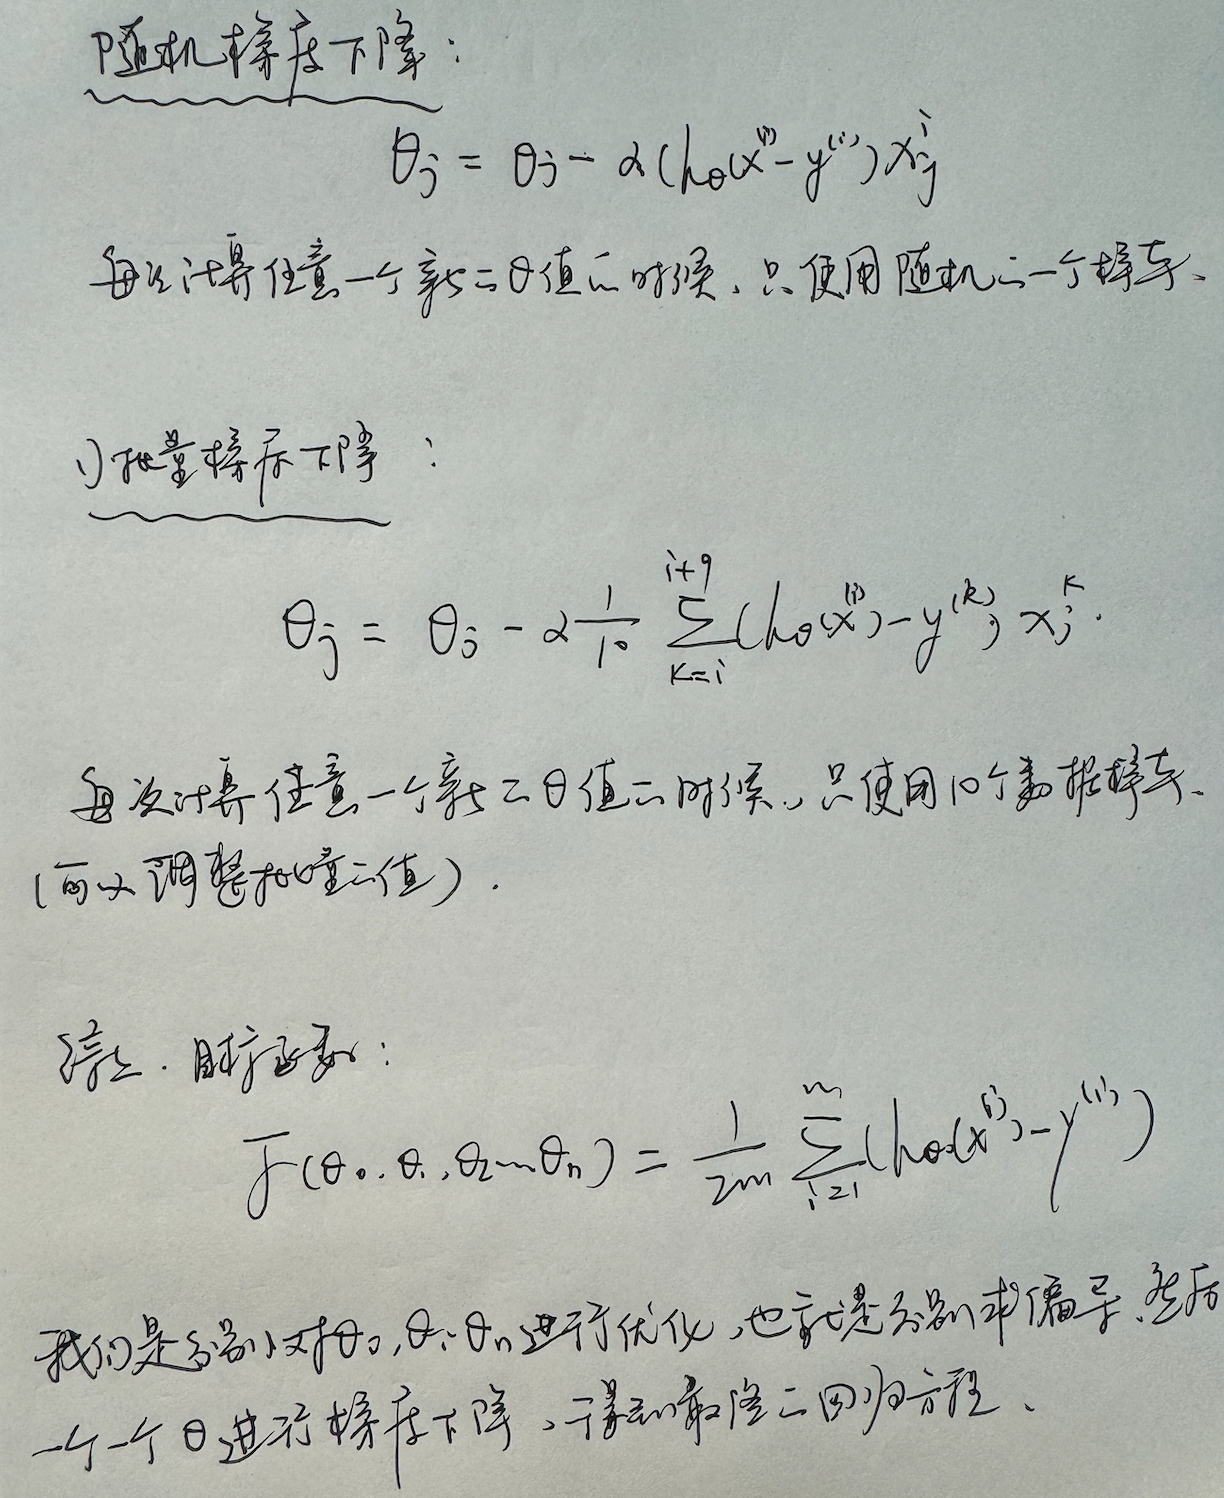 随机梯度下降：
θj = θj - α(hθ(x⁽ⁱ⁾ - y⁽ⁱ⁾)xʲⁱ
每次计算任意一个新的θ值的时候，只使用随机的一个样本.
小批量梯度下降：
θj = θj - α 1/10 Σ_{k=i}^{i+9} (hθ(x⁽ⁱ⁾) - y⁽ᵏ⁾) xj^k.
每次计算任意一个新的θ值的时候，只使用10个数据样本.
(可以调整批量的值).
综上.目标函数：
J(θ0.θ1,θ2...θn) = 1/2m Σ_{i=1}^{m} (hθ(x⁽ⁱ⁾) - y⁽ⁱ⁾)
我们是分别对θ0,θ1θn进行优化,也就是分别求偏导.然后
一个一个θ进行梯度下降,得到最终的回归方程.